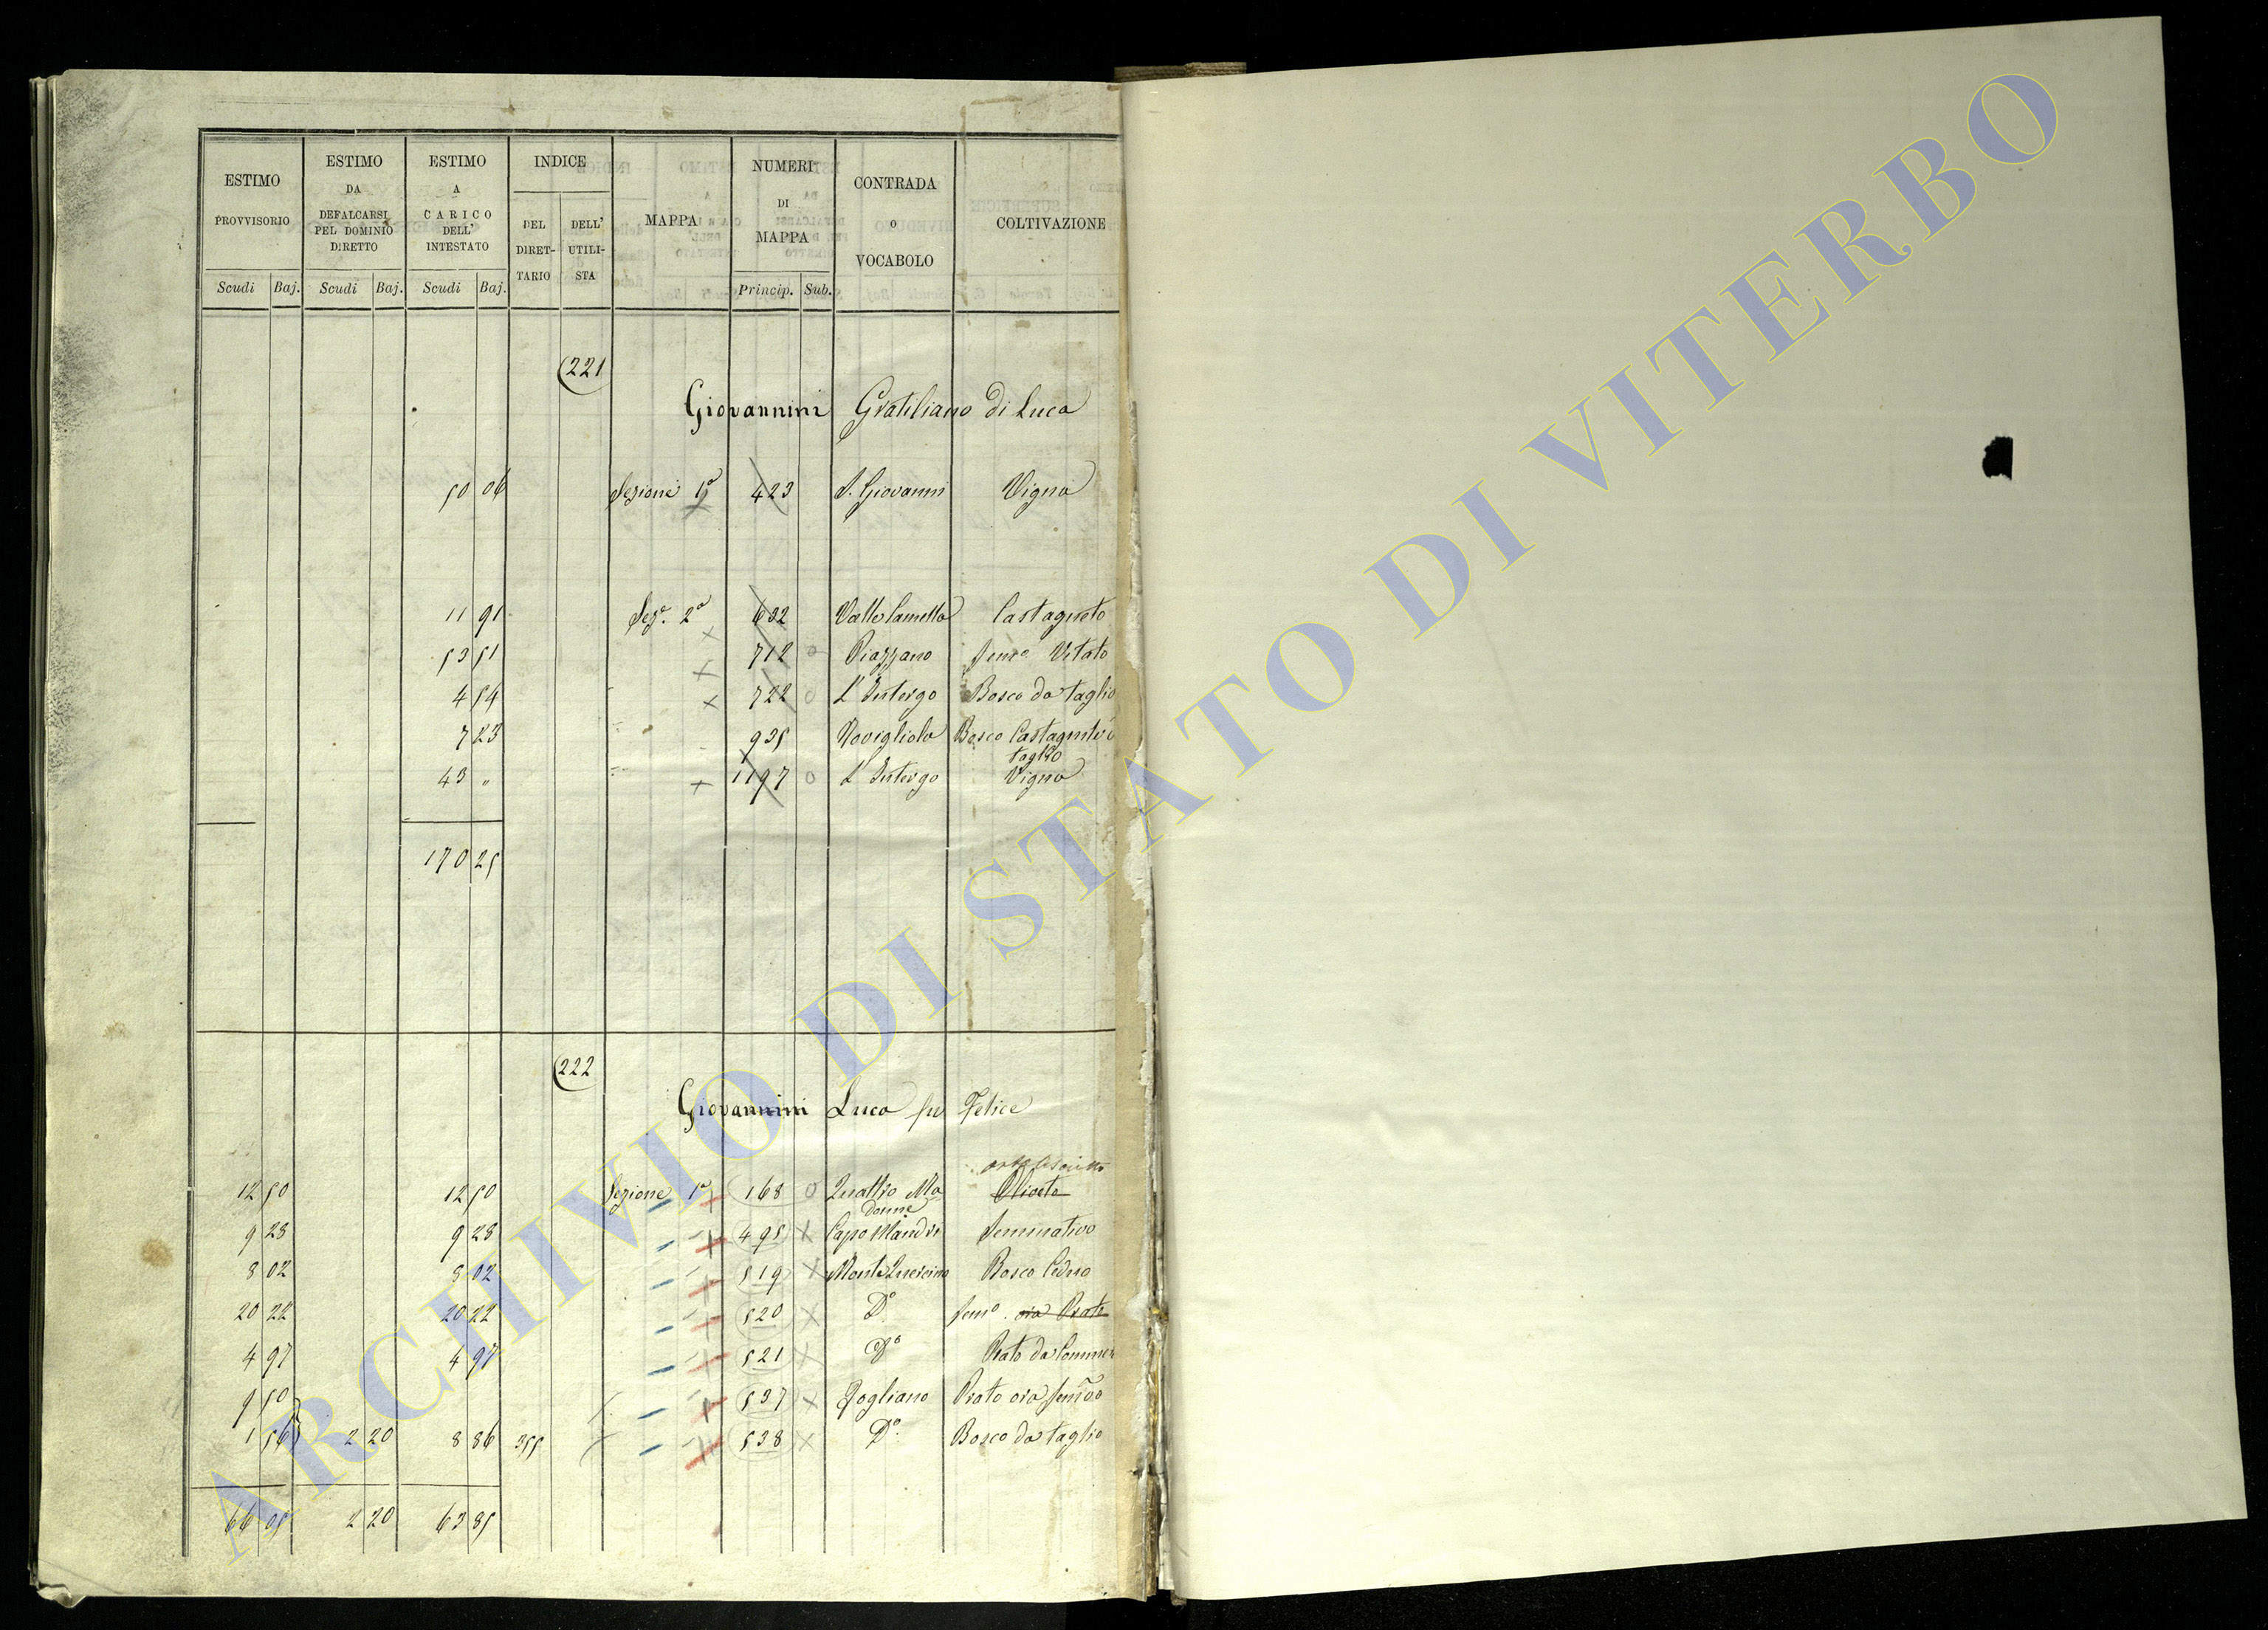 ESTIMO PROVVISORIO | ESTIMO DA DEFALCARSI PEL DOMINIO DIRETTO | ESTIMO A CARICO DELL' INTESTATO | INDICE | MAPPA | NUMERI DI MAPPA | CONTRADA O VOCABOLO | COLTIVAZIONE
DEL DIRETTARIO | DELL' UTILISTA
Scudi | Baj. | Scudi | Baj. | Scudi | Baj. | Princip. | Sub.
221
Giovannini Gratiliano di Luca
50 06 Sezione 1a 423 S. Giovanni Vigna
11 91 Sez.e 2a 632 Castagneto
53 51 712 0 Piazzano Semo Vitato
4 54 722 0 L'Intergo Bosco da taglio
7 23 935 Novigliola Bosco Castagnile
taglio
43 " 1197 0 L'Intergo Vigna
170 25
222
Giovannini Luca fu Felice
12 50 12 50 Sezione 1a 168 0 Quattro Ma Oliveto
donne
9 28 9 28 " 495 Capo Mandro Seminativo
8 02 8 02 " 519 Monte Quercino Bosco Ceduo
20 22 20 22 " 520 Do Semo. ora Prato
4 97 4 97 " 521 Do Prato da
9 50 " 537 Pogliano Prato ora
1 56 2 20 8 86 355 " 538 Do. Bosco da taglio
66 05 2 20 63 85
ARCHIVIO DI STATO DI VITERBO